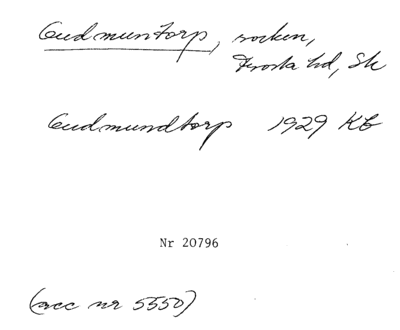 Gudmuntorp, socken,
Frosta hd, Sk
Gudmundtorp 1929 KG
Nr 20796
(acc nr 5550)